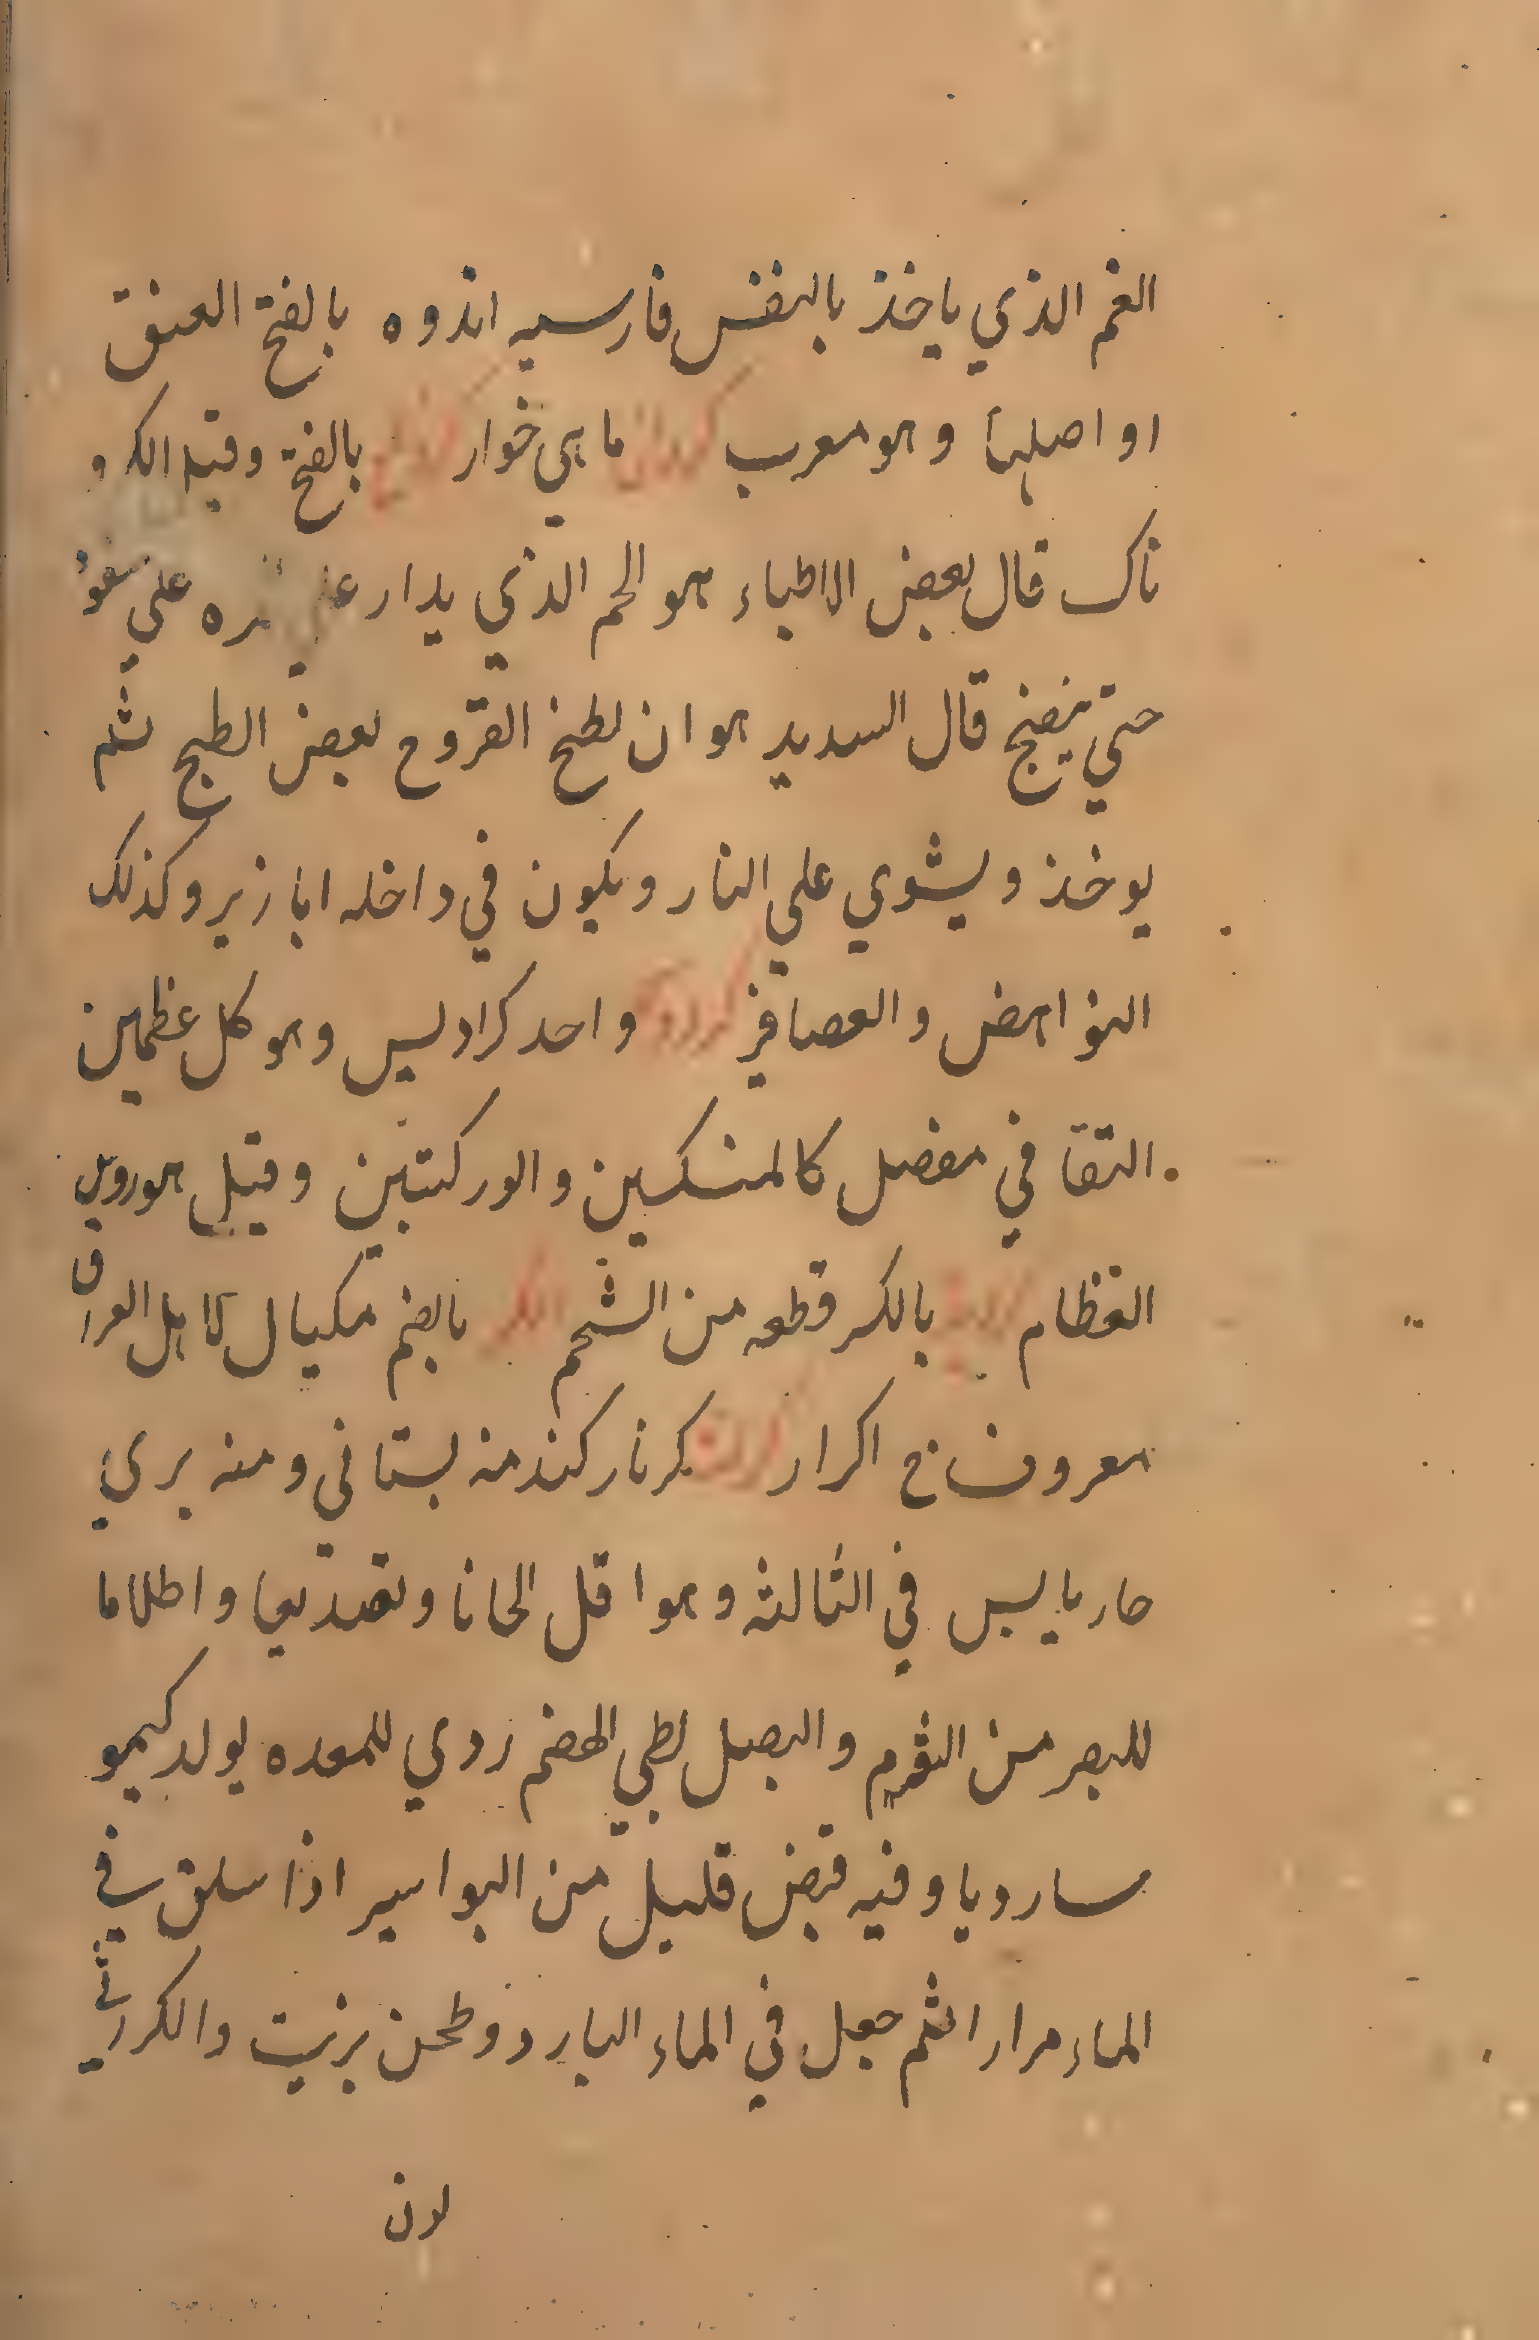 الغم الذي ياخذ بالنفس فارسيه اندوه بالفتح العنق
او اصلها وهو معرب ماهي خوار بالفتح وقيل الكر و
ناك قال بعض الاطباء هو الحم الذي يدار على علي سفود
حتي ينضج قال السديد هو ان لطخ الفروح بعض الطبخ ثم
يوخذ ويشوي علي النار ويكون في داخله ابازير وكذلك
النواهض والعصافير واحد كراديس وهو كل عظمين
التقا في مفصل كالمنكبين والوركتين وقيل هو روس
العظام بالكسر قطعه من الشحم الكر بالضم مكيال لاهل العراق
معروف ج اكرار كرنار كند منه بستاني ومنه بري
حار يابس في الثالثه وهو اقل الحانا وتصديعا واظلاما
للبصر من الثوم والبصل بطي الهضم ردي للمعده يولد كيمو
سا رديا وفيه قبض قليل من البواسير اذا سلق في
الماء مرارا ثم جعل في الماء البارد وطحن بزيت والكراثي
لون